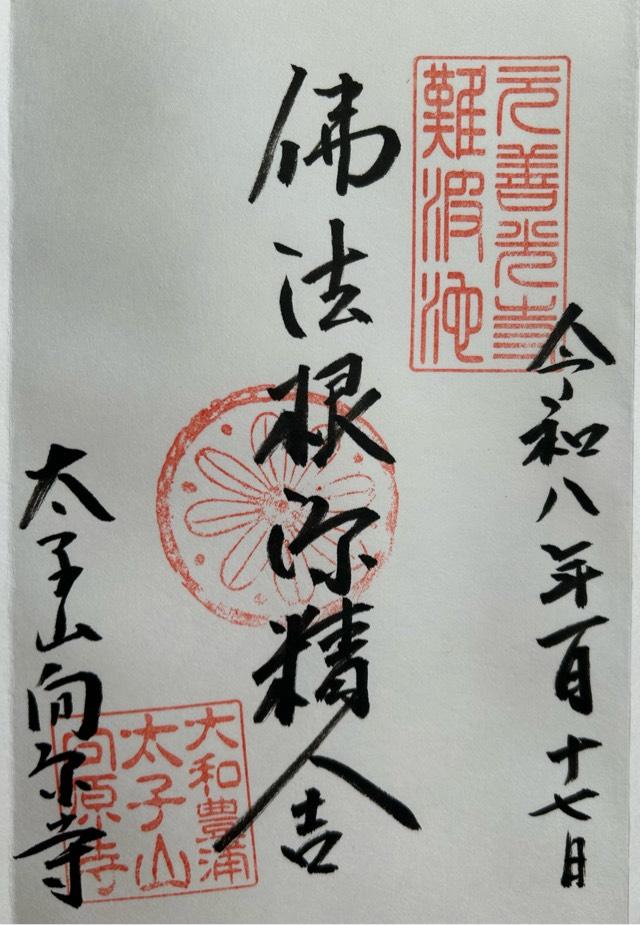 元善光寺
難波池
令和八年一月十七日
佛法根源精舎
太子山向原寺
大和豊浦
太子山
向原寺